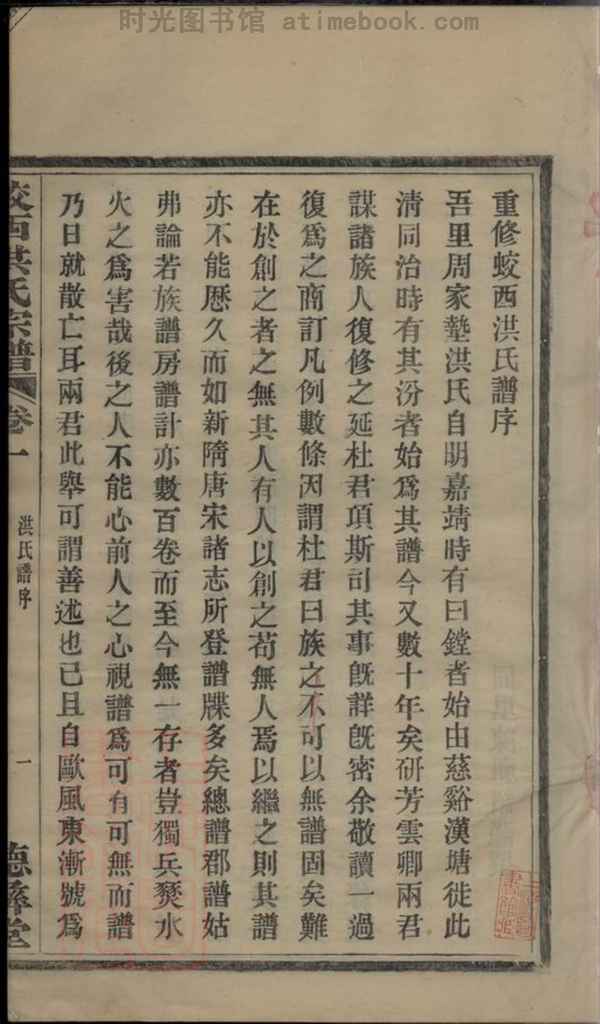 时光图书馆 atimebook.com
重修蛟西洪氏譜序
吾里周家墊洪氏自明嘉靖時有曰鏜者始由慈谿漢塘徙此
清同治時有其汾者始爲其譜今又數十年矣硏芳雲卿兩君
謀諸族人復修之延杜君項斯司其事旣詳旣密余敬讀一過
復爲之商訂凡例數條因謂杜君曰族之不可以無譜固矣難
在於創之者之無其人有人以創之苟無人焉以繼之則其譜
亦不能歷久而如新隋唐宋諸志所登譜牒多矣總譜郡譜姑
弗論若族譜房譜計亦數百卷而至今無一存者豈獨兵燹水
火之爲害哉後之人不能心前人之心視譜爲可有可無而譜
乃日就散亡耳兩君此舉可謂善述也已且自歐風東漸號爲
蛟西洪氏宗譜 卷一 洪氏譜序 一